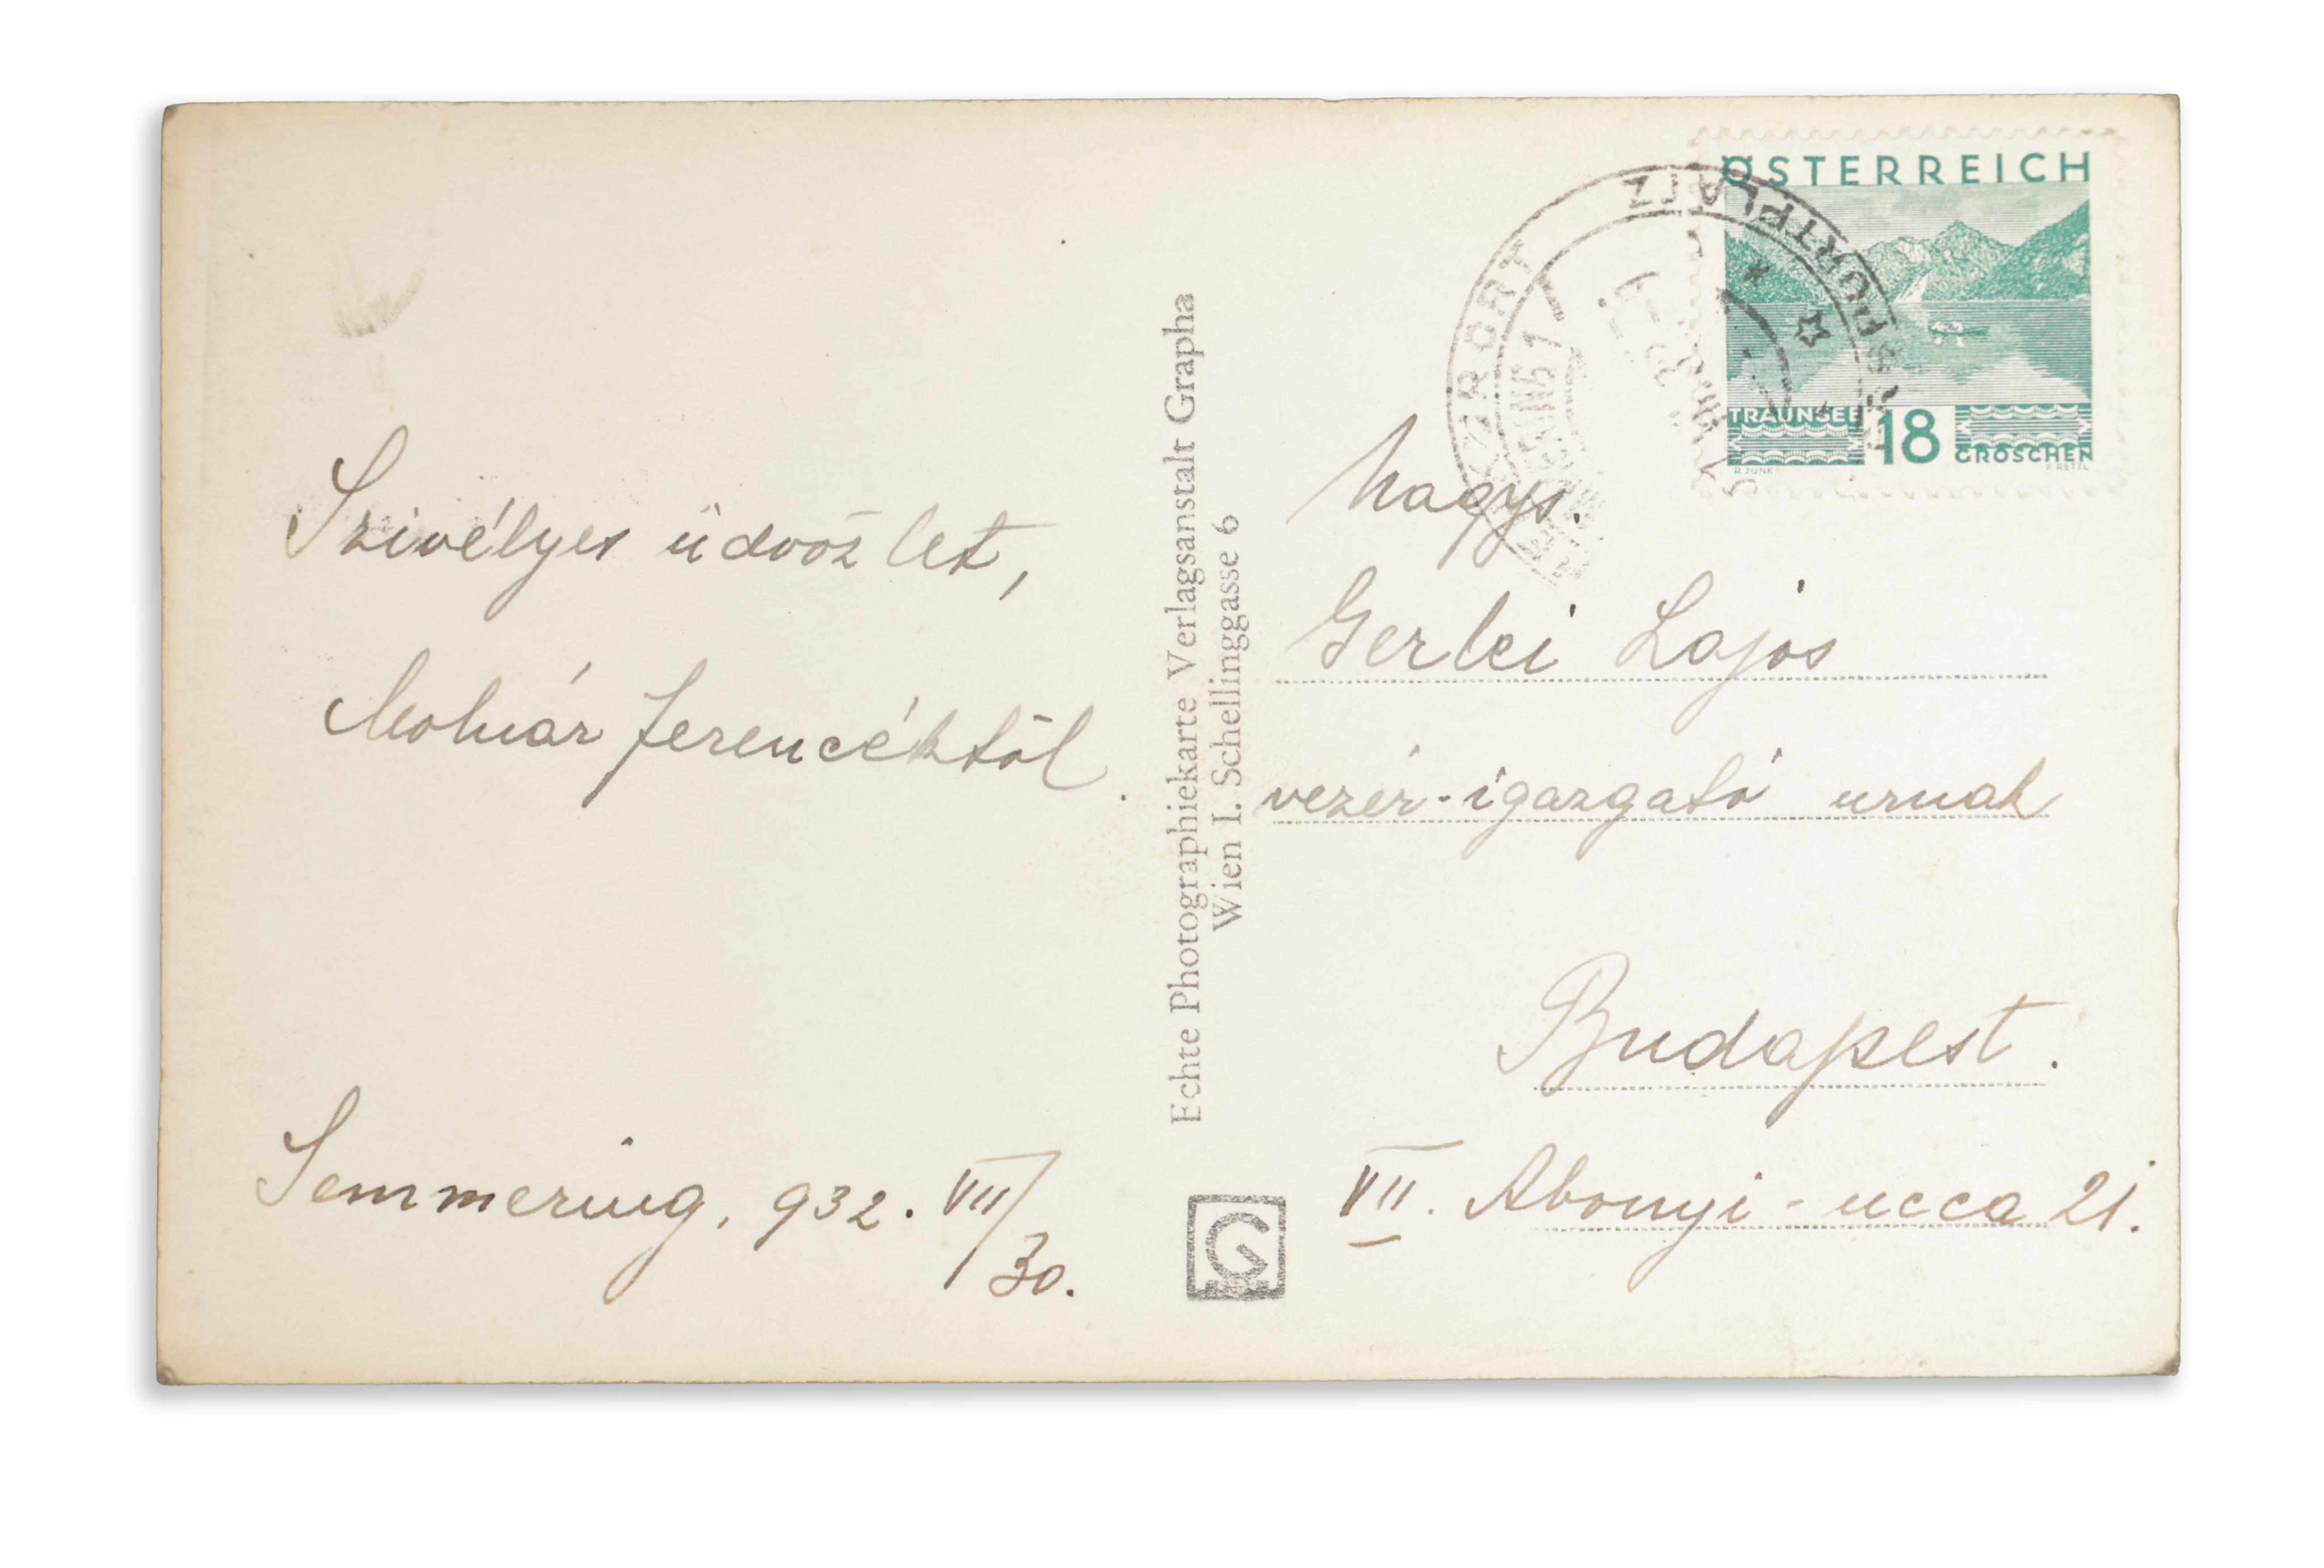 Szivélyes üdvözlet,
Molnár Ferencéktől.
Semmering, 932. VII/30.
Echte Photographiekarte Verlagsanstalt Grapha
Wien I. Schellinggasse 6
G
ÖSTERREICH
TRAUNSEE
18
GROSCHEN
R. JUNK
F. RETZL
KURORT
SPORTPLATZ
Nagys.
Gerlei Lajos
vezér-igazgató urnak
Budapest.
VII. Abonyi-ucca 21.